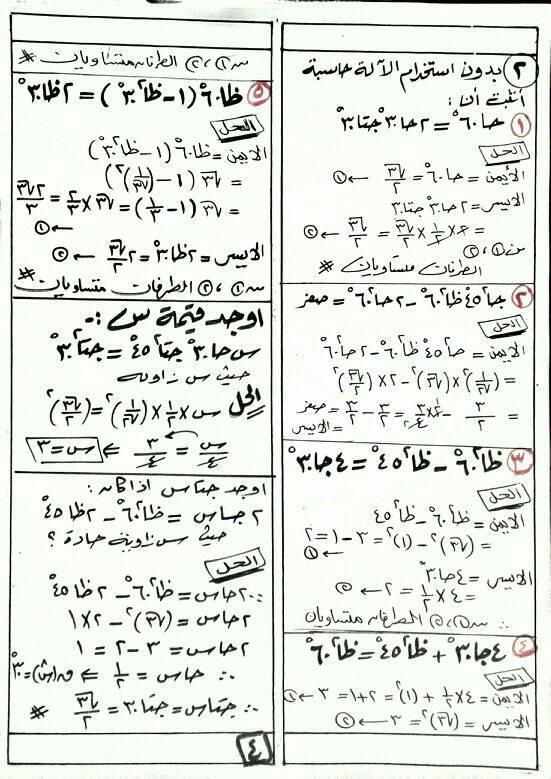 ٢ بدون استخدام الآلة حاسبة
أثبت أن:
١ حا ٦٠° = ٢ حا ٣٠° جتا ٣٠°
الحل
الأيمن = حا ٦٠° = √٣/٢ ← ١
الأيسر = ٢ حا ٣٠° جتا ٣٠
= ٢ × ١/٢ × √٣/٢ = √٣/٢ ← ٢
من ١، ٢
الطرفان متساويان #
٢ جا٢ ٤٥° ظا٢ ٦٠° - ٢ حا٢ ٦٠° = صفر
الحل
الأيمن = حا٢ ٤٥° ظا٢ ٦٠° - ٢ حا٢ ٦٠°
= (١/√٢)٢ × (√٣)٢ - ٢ × (√٣/٢)٢
= ٣/٢ - ٢×٣/٤ = ٣/٢ - ٣/٢ = صفر
= الأيسر
٣ ظا٢ ٦٠° - ظا٢ ٤٥° = ٤ جا ٣٠°
الحل
الأيمن = ظا٢ ٦٠° - ظا٢ ٤٥
= (√٣)٢ - (١)٢ = ٣ - ١ = ٢
← ١
الأيسر = ٤ حا ٣٠°
= ٤ × ١/٢ = ٢ ← ٢
∴ من ١، ٢ الطرفان متساويان
٤ ٤ جا ٣٠° + ظا٢ ٤٥° = ظا٢ ٦٠°
الحل
الأيمن = ٤ × ١/٢ + (١)٢ = ٢ + ١ = ٣ ← ١
الأيسر = (√٣)٢ = ٣ ← ٢
من ١، ٢ الطرفان متساويان #
٥ ظا ٦٠° (١ - ظا٢ ٣٠°) = ٢ ظا ٣٠°
الحل
الأيمن = ظا ٦٠° (١ - ظا٢ ٣٠°)
= √٣ (١ - (١/√٣)٢)
= √٣ (١ - ١/٣) = √٣ × ٢/٣ = ٢√٣/٣
← ١
الأيسر = ٢ ظا ٣٠° = ٢ √٣/٢ ← ٢
من ١، ٢ الطرفان متساويان #
اوجد قيمة س :-
س حا ٣٠° جتا٢ ٤٥° = جتا٢ ٣٠°
حيث س زاوية
الحل س × ١/٢ × (١/√٢)٢ = (√٣/٢)٢
س/٤ = ٣/٤ ⇐ س = ٣
اوجد جتا س اذا كان:
٢ جا س = ظا٢ ٦٠° - ٢ ظا ٤٥°
حيث س زاوية حادة ؟
الحل
∵ ٢ حا س = ظا٢ ٦٠° - ٢ ظا ٤٥°
٢ حا س = (√٣)٢ - ٢ × ١
٢ حا س = ٣ - ٢ = ١
∴ حا س = ١/٢ ⇐ ق(س) = ٣٠°
∴ جتا س = جتا ٣٠ = √٣/٢ #
٤